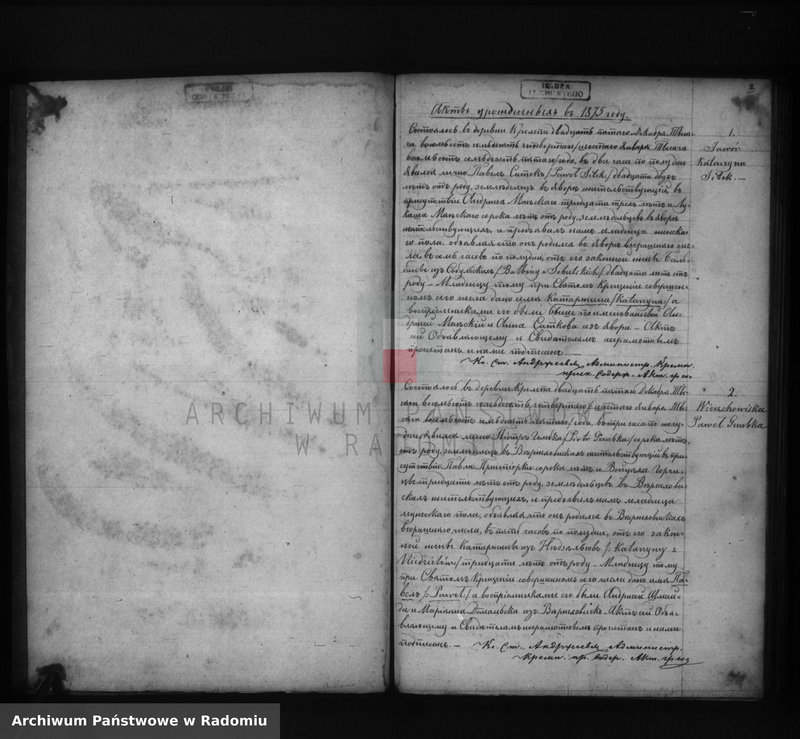 2.
Акты урожденныхъ въ 1875 году.
1.
Jawór
Katarzyna
Sitek. —
Состоялось въ деревни Кремпа двадцать пятаго Декабра Тыся-
ча восемьсотъ семьдесятъ четвертаго / шестаго Января Тысяча
восемьсотъ семьдесятъ пятаго года, въ два часа по полудни
явился лично Павелъ Ситекъ / Paweł Sitek / двадцати двухъ
лѣтъ отъ роду, земледѣлецъ въ Яворѣ жительствующій, въ
присутствіи Андрея Манскаго тридцати трехъ лѣтъ и Лу-
каша Манскаго сорока лѣтъ отъ роду, земледѣльцовъ въ Яворѣ
жительствующихъ, и предъявилъ намъ младенца женска-
го пола объявляя что онъ родился въ Яворѣ вчерашняго чи-
сла, въ семь часовъ по полудни, отъ его законной жены Баль-
бины изъ / Balbiny z / двадцати лѣтъ отъ
роду — Младенцу тому при Святомъ Крещеніи совершон-
номъ сего числа дано имя Катаржина / Katarzyna / а
воспріемниками его были выше поименованный Ан-
дрей Манский и Анна Ситкова изъ Явора — Актъ
сей Объявляющему и Свидѣтелямъ неграмотнымъ
прочитанъ и нами подписанъ —
Кс. Ст. Андржеевскій Администр. Кремп.
Содерж. Акт. гр. сос.
2.
Wierzchowiska
Paweł Gembka
Состоялось въ деревни Кремпа двадцать пятаго Декабра Ты-
сяча восемьсотъ семьдесятъ четвертаго / шестаго Января Ты-
сяча восемьсотъ семьдесятъ пятаго / года, въ три часа по полу-
дни явился лично Піотръ Гембка / Piotr Gembka / сорока лѣтъ
отъ роду, земледѣлецъ въ Вержховискахъ жительствующій, въ при-
сутствіи Павла сорока лѣтъ и Войцѣха
тридцати лѣтъ отъ роду, земледѣльцовъ въ Вержхови-
скахъ жительствующихъ, и предъявилъ намъ младенца
мужескаго пола, объявляя что онъ родился въ Вержховискахъ
вчерашняго числа, въ пять часовъ по полудни, отъ его закон-
ной жены Катаржины изъ / Katarzyny z
/ тридцати лѣтъ отъ роду — Младенцу тому
при Святомъ Крещеніи совершонномъ сего числа дано имя Па-
велъ / Paweł / а воспріемниками его были Андржей
и Маріанна изъ Вержховискъ — Актъ сей Объя-
вляющему и Свидѣтелямъ неграмотнымъ прочитанъ и нами
подписанъ — Кс. Ст. Андржеевскій Администр.
Кремп. пр. Содер. Акт. гр. сос
ARCHIWUM PAŃSTWOWE
W RADOMIU
Archiwum Państwowe w Radomiu